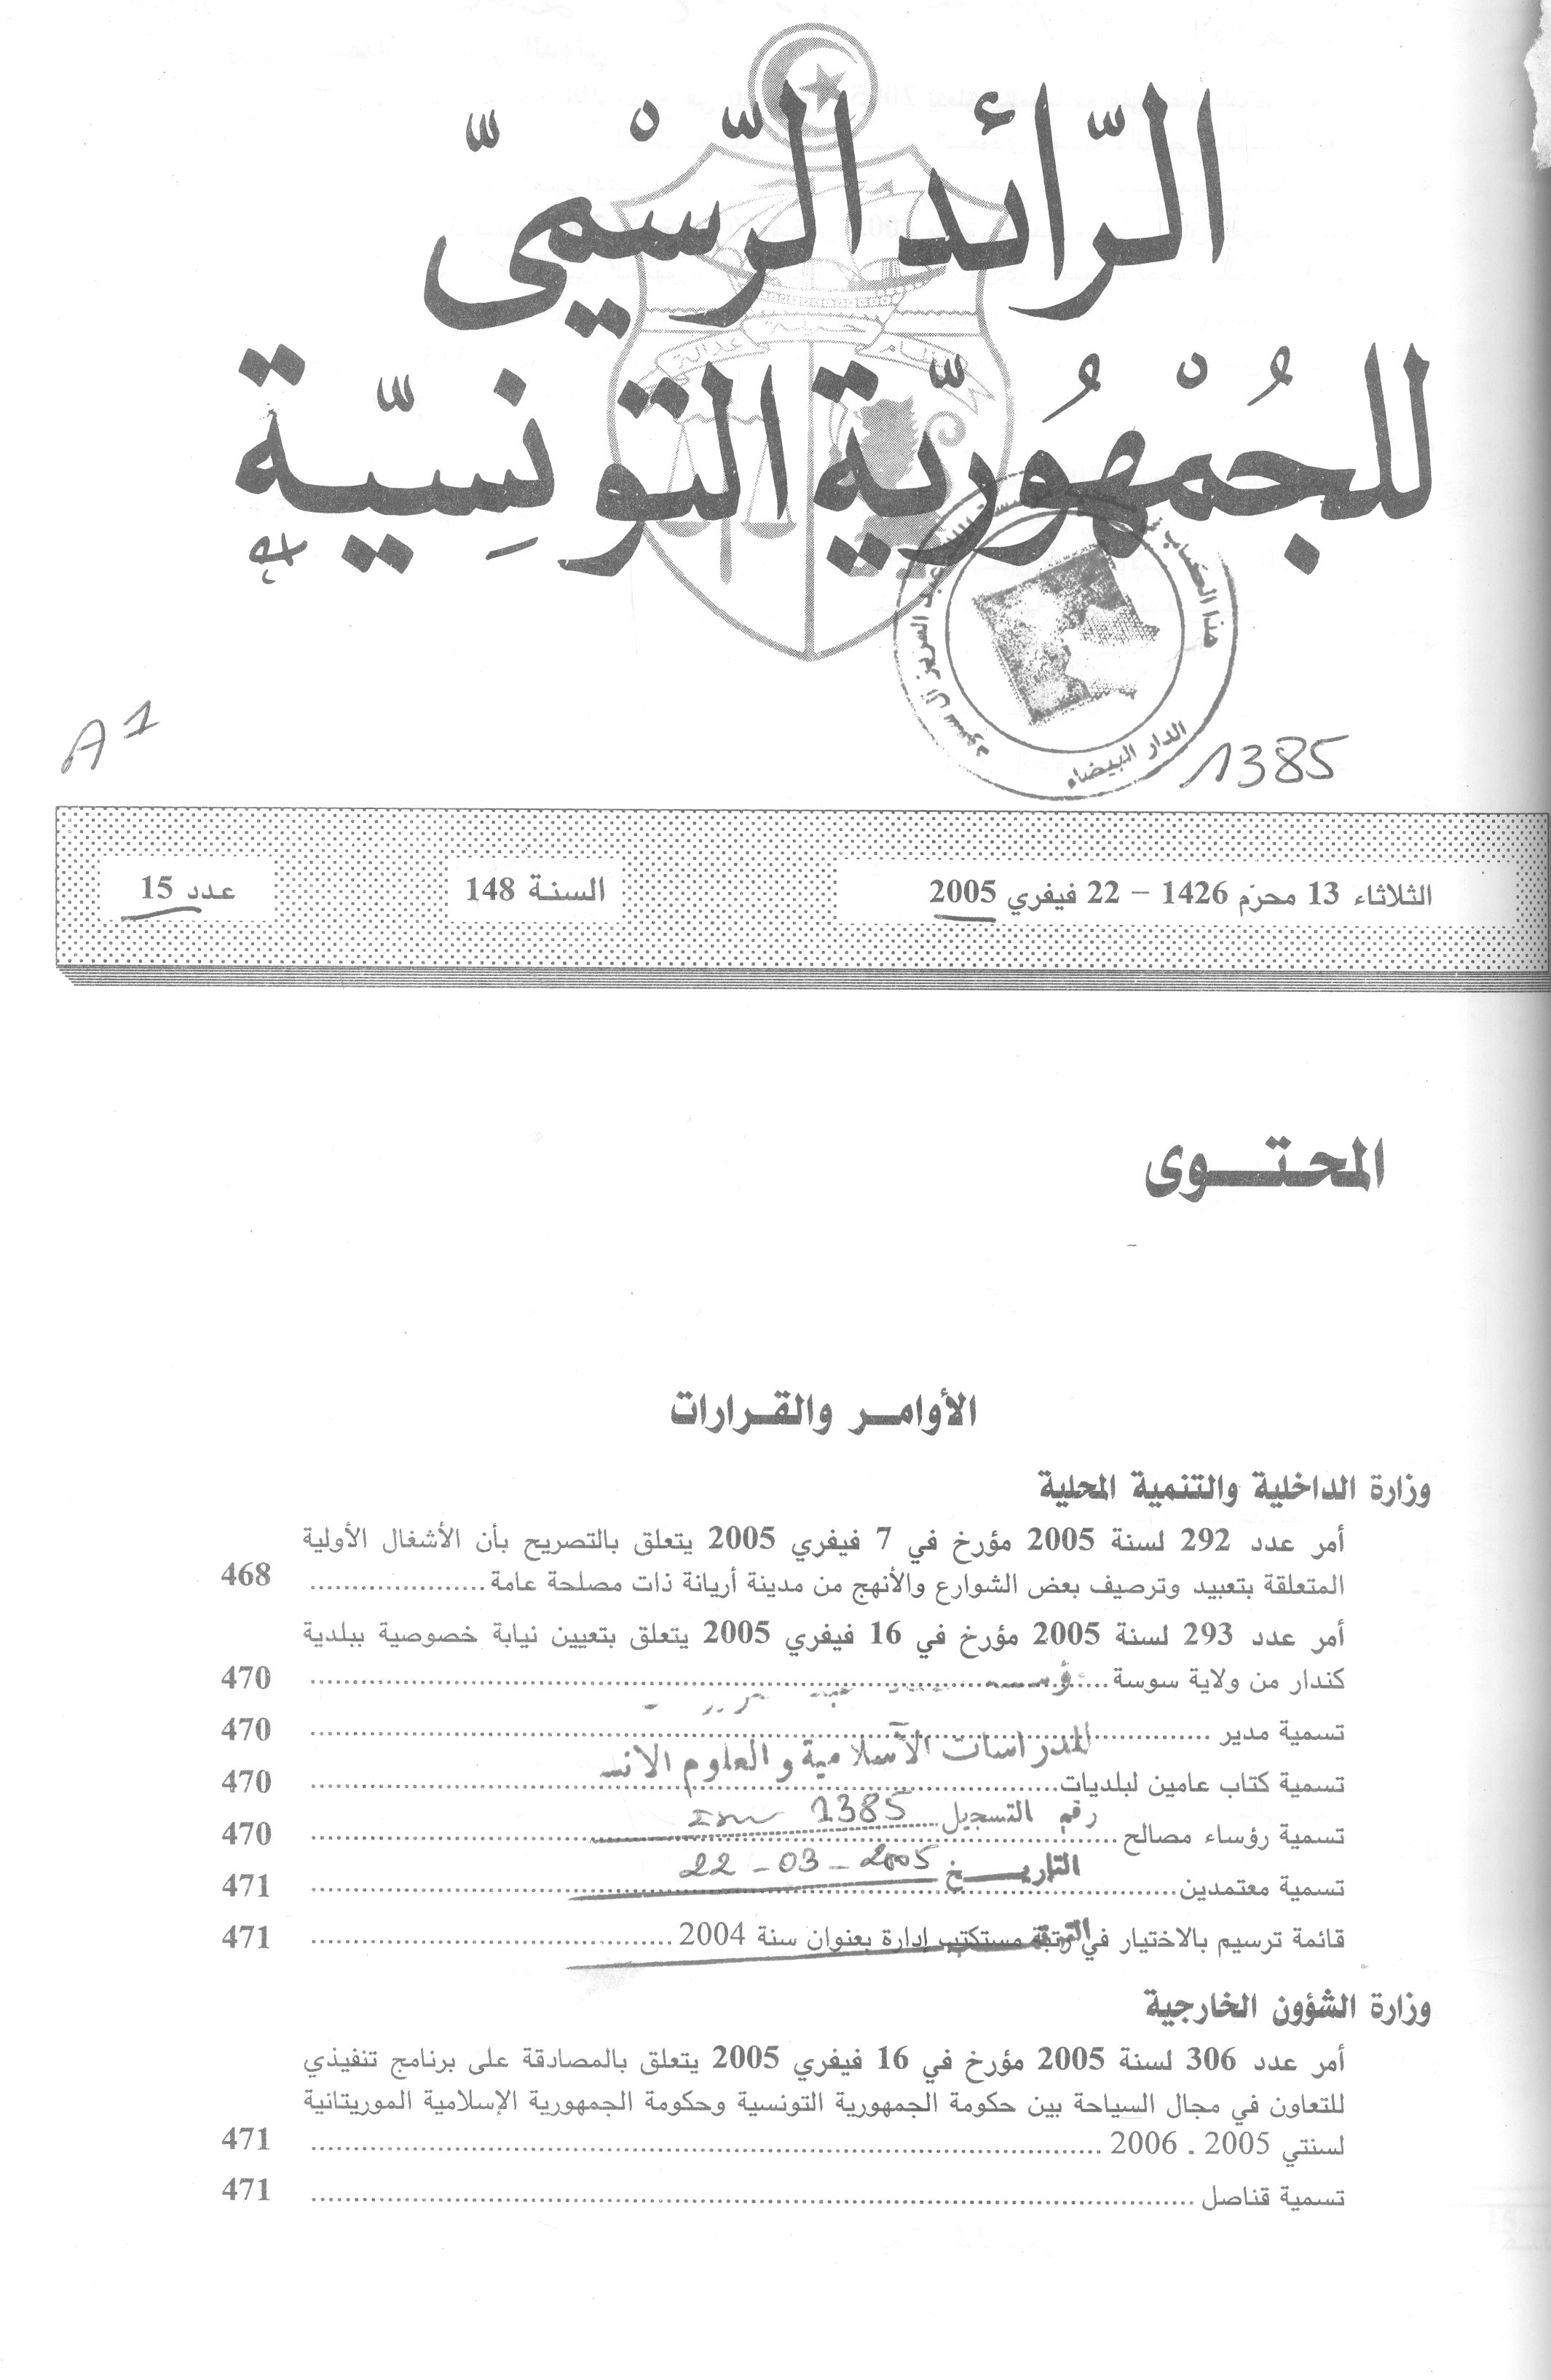 الرّائد الرّسْميّ
للجُمْهُوريّة التونِسيّة
نظام حرية عدالة
عبد العزيز آل سعود
الدار البيضاء
A1
1385
الثلاثاء 13 محرّم 1426 – 22 فيفري 2005
السنة 148
عدد 15
المحتوى
الأوامر والقرارات
وزارة الداخلية والتنمية المحلية
أمر عدد 292 لسنة 2005 مؤرخ في 7 فيفري 2005 يتعلق بالتصريح بأن الأشغال الأولية
المتعلقة بتعبيد وترصيف بعض الشوارع والأنهج من مدينة أريانة ذات مصلحة عامة .................... 468
أمر عدد 293 لسنة 2005 مؤرخ في 16 فيفري 2005 يتعلق بتعيين نيابة خصوصية ببلدية
كندار من ولاية سوسة .................... 470
تسمية مدير .................... 470
للدراسات الاسلامية والعلوم الانسـ
تسمية كتاب عامين لبلديات .................... 470
رقم التسجيل 1385
تسمية رؤساء مصالح .................... 470
التاريخ 2005 - 03 - 22
تسمية معتمدين .................... 471
قائمة ترسيم بالاختيار في رتبة مستكتب إدارة بعنوان سنة 2004 .................... 471
وزارة الشؤون الخارجية
أمر عدد 306 لسنة 2005 مؤرخ في 16 فيفري 2005 يتعلق بالمصادقة على برنامج تنفيذي
للتعاون في مجال السياحة بين حكومة الجمهورية التونسية وحكومة الجمهورية الإسلامية الموريتانية
لسنتي 2005 . 2006 .................... 471
تسمية قناصل .................... 471